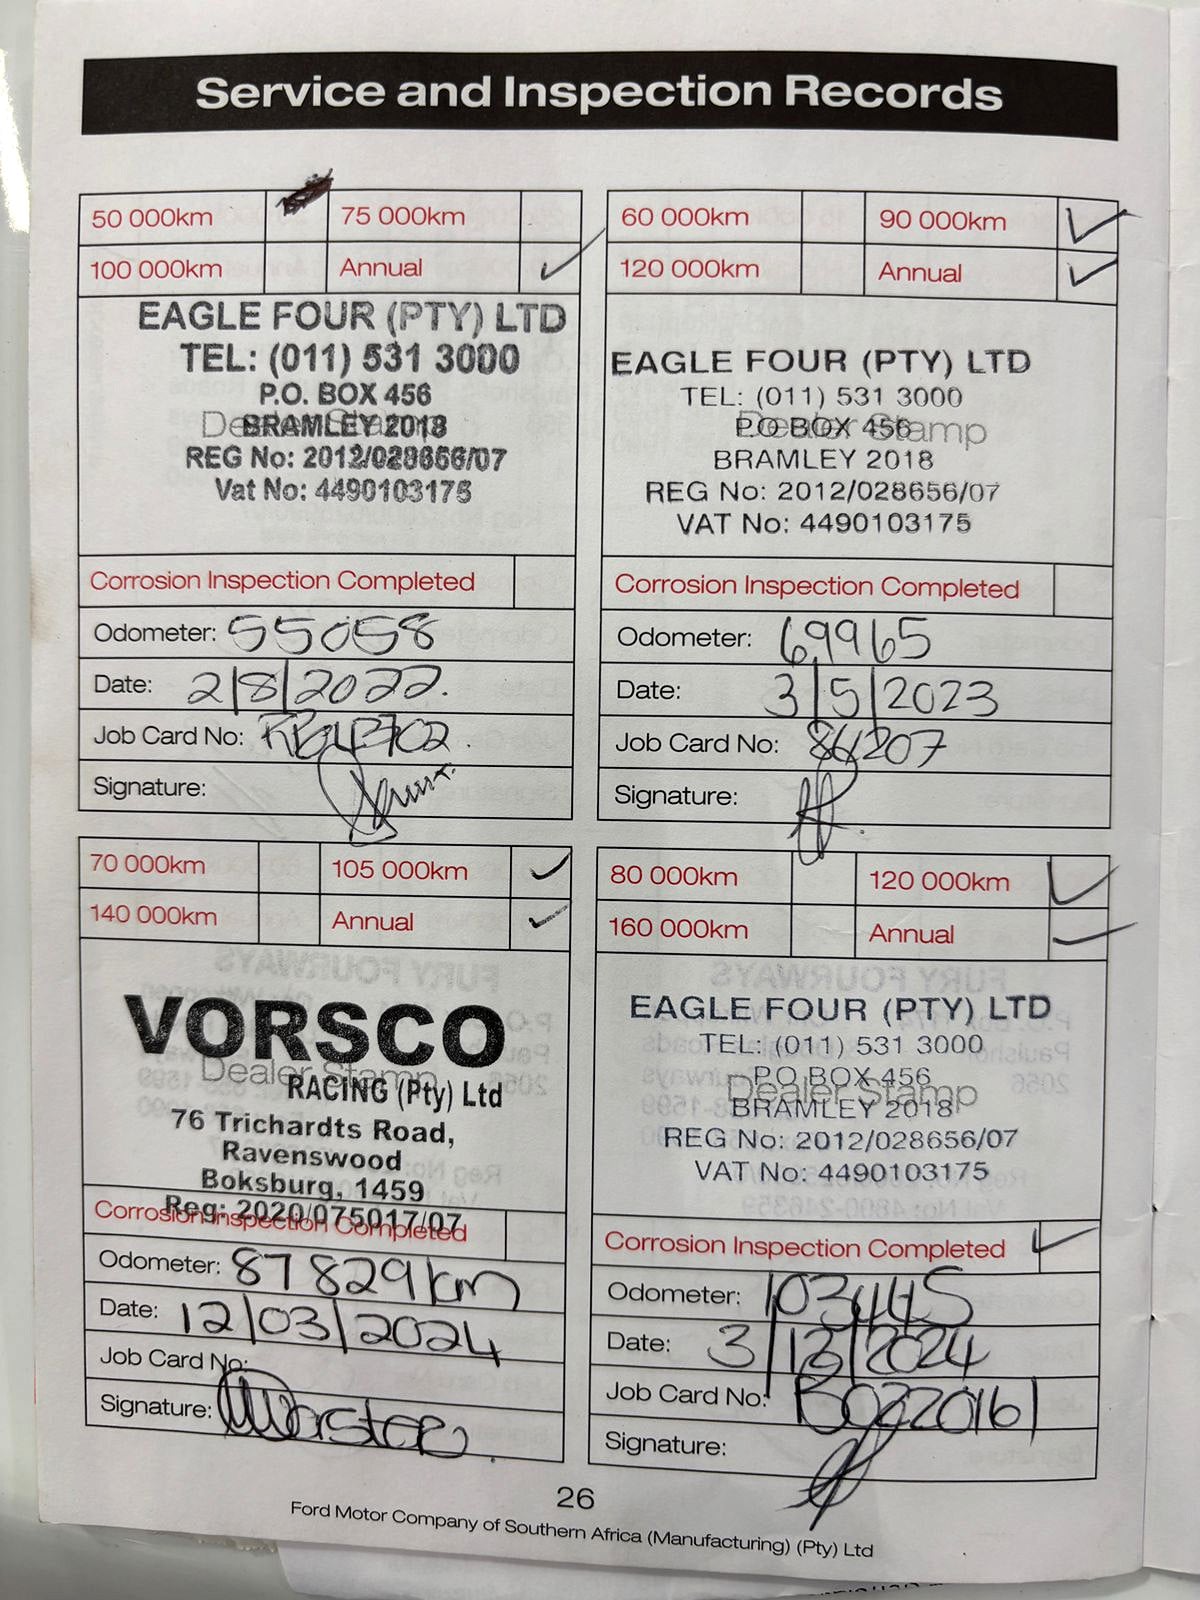 Service and Inspection Records
50 000km 75 000km
100 000km Annual ✓
EAGLE FOUR (PTY) LTD
TEL: (011) 531 3000
P.O. BOX 456
Dealer Stamp
BRAMLEY 2018
REG No: 2012/028656/07
Vat No: 4490103175
Corrosion Inspection Completed
Odometer: 55058
Date: 2/8/2022.
Job Card No:
Signature:
60 000km 90 000km ✓
120 000km Annual ✓
EAGLE FOUR (PTY) LTD
TEL: (011) 531 3000
P.O BOX 456
Dealer Stamp
BRAMLEY 2018
REG No: 2012/028656/07
VAT No: 4490103175
Corrosion Inspection Completed
Odometer: 69965
Date: 3/5/2023
Job Card No:
Signature:
70 000km 105 000km ✓
140 000km Annual ✓
VORSCO
Dealer Stamp
RACING (Pty) Ltd
76 Trichardts Road,
Ravenswood
Boksburg, 1459
Reg: 2020/075017/07
Corrosion Inspection Completed
Odometer: 87829km
Date: 12/03/2024
Job Card No:
Signature:
80 000km 120 000km ✓
160 000km Annual ✓
EAGLE FOUR (PTY) LTD
TEL: (011) 531 3000
P.O BOX 456
Dealer Stamp
BRAMLEY 2018
REG No: 2012/028656/07
VAT No: 4490103175
Corrosion Inspection Completed ✓
Odometer: 103445
Date: 3/12/2024
Job Card No:
Signature:
26
Ford Motor Company of Southern Africa (Manufacturing) (Pty) Ltd